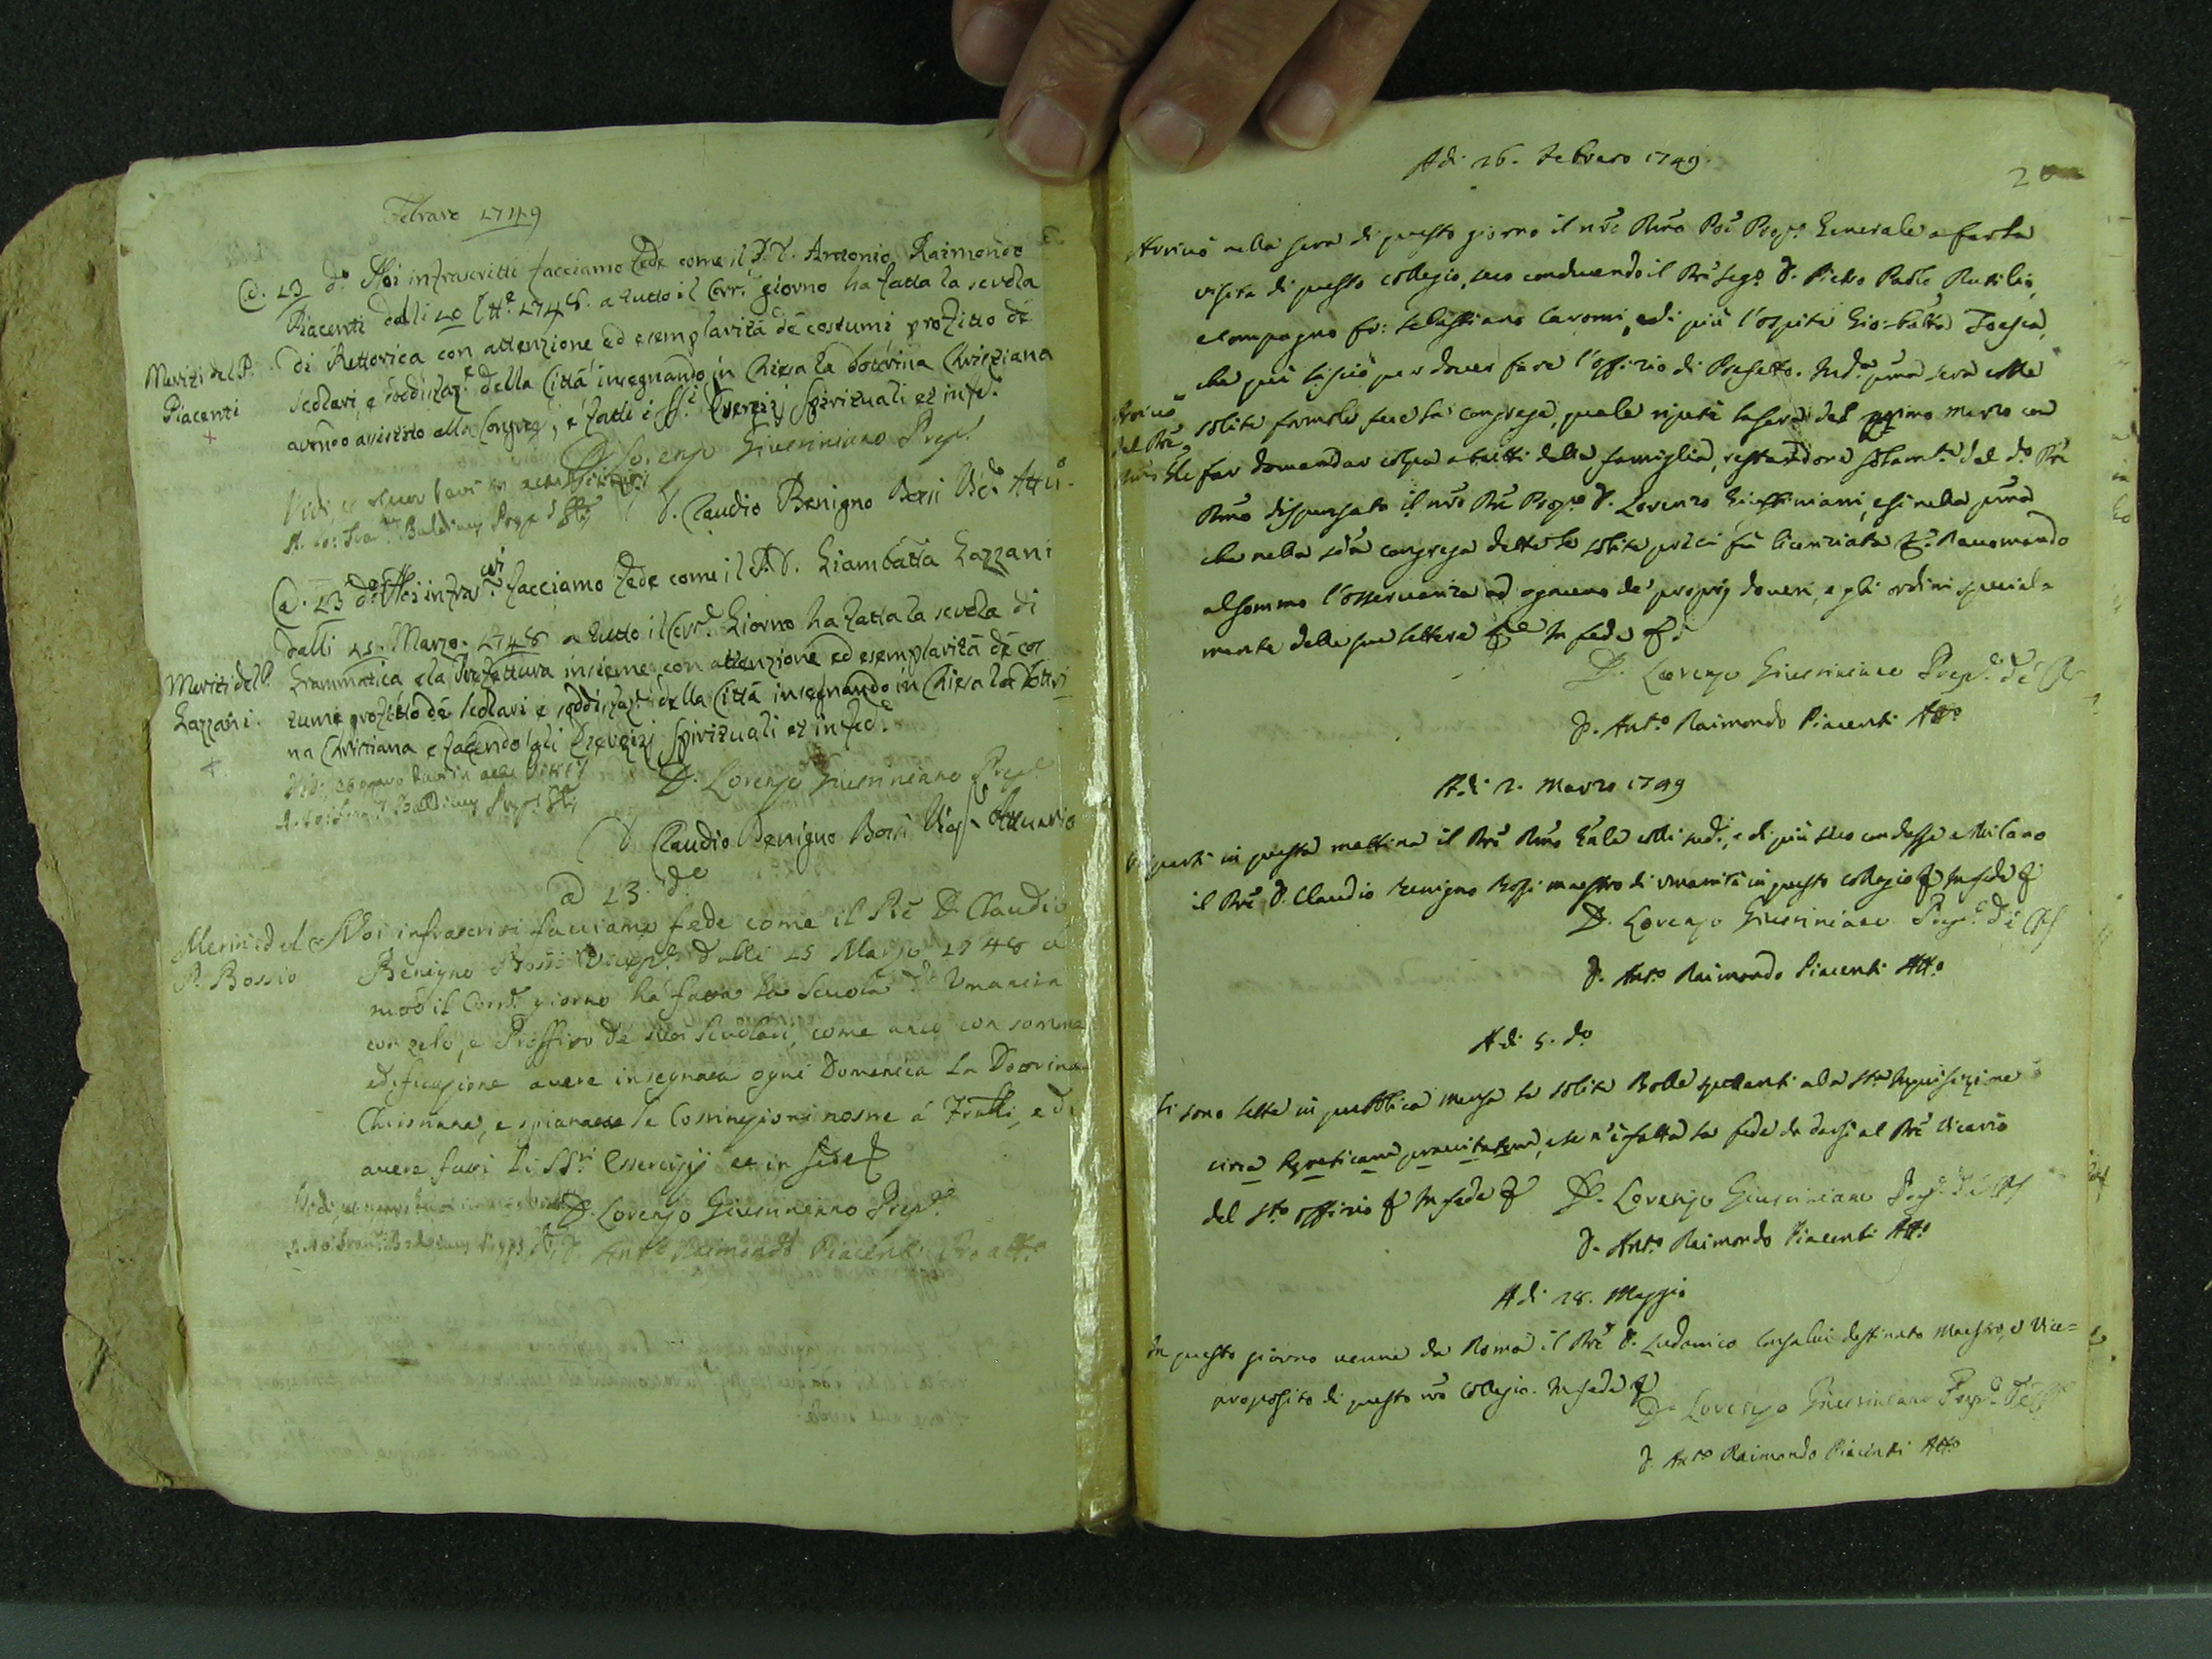 Febraro 1749
@. 23 do. Noi infrascritti facciamo fede come il P. D. Antonio Raimondo
Piacenti dalli 20 8tte. 1748. a tutto il Corr.te giorno ha fatta la scuola
di Rettorica con attenzione ed esemplarità de costumi profitto de
Meriti del P.
Piacenti
scolari, e soddisfaz.e della Città insegnando in Chiesa la dottrina Christiana
avendo assistito alla Congreg.e, e fatti i SS.i Esercizj Spirituali et in fede.
D. Lorenzo Giustiniano Prep.to
D. Claudio Benigno Bossi Vice Attu.o
@. 23 do. Noi infrascritti facciamo fede come il P. D. Giambatta Gazzani
dalli 25. Marzo. 1748 a tutto il Corr.e Giorno ha fatta la scuola di
Meriti del P.
Gazzani.
Grammatica e la Prefettura insieme, con attenzione ed esemplarità de cos
tumi profitto de scolari e soddisfaz.e della Città insegnando in Chiesa la Dottri
na Christiana e facendo gli Esercizj Spirituali et in fede.
D. Lorenzo Giustiniano Prep.to
D. Claudio Benigno Bossi Attuario
a 23. do
Meriti del
P. Bossio
Noi infrascritti facciamo fede come il Pre D. Claudio
Benigno Bossi dalli 25 Marzo 1748 a
tutto il Corr.te giorno ha fatta la Scuola d'Umanità
con zelo, e Proffitto de suoi Scuolari, come anco con somma
edificazione avere insegnata ogni Domenica La Dottrina
Christiana, e spianate le Costituzioni nostre á Fratelli, e di
avere fatti li SS.ri Essercizij et in fede
D. Lorenzo Giustiniano Prep.to
D. Ant.o Raimondo Piacenti Pro att.o
Adi 26. Febraro 1749.
20
Arrivò nella sera di questo giorno il nro Rmo Pre Prep.o Generale a far la
visita di questo collegio, seco conducendo il Pre Seg.o D. Pietro Paolo Rutilio,
e compagno fr: Sebastiano Caroni, e di più l'ospite Gio: batta Toesca,
che qui lasciò per dover fare l'offizio di Prefetto. Nd.a pma sera colle
Arrivo
del Pre
Rmo Gle
solite formole fece la congrega, quale ripetè la sera del primo marzo con
far domandar colpa a tutti della famiglia, restandone solam.te dal do. Pre
Rmo dispensato il nro Pre Prep.to D. Lorenzo Giustiniani, e sì nella pma
che nella 2da congrega dette le solite preci fu licenziata &. Raccomando
al sommo l'osservanza ad ognuno de' proprij doveri, e gli ordini special=
mente delle sue lettere &. In fede &
D. Lorenzo Giustiniano Prep.to
D. Ant.o Raimondo Piacenti Att.o
Adi 2. Marzo 1749
Si partì in questa mattina il Pre Rmo Gnle colli sud.i, e di più seco condusse a Milano
il Pre D. Claudio Benigno Bossi maestro di umanità in questo collegio & In fede &
D. Lorenzo Giustiniano Prep.to
D. Ant.o Raimondo Piacenti Att.o
Adi 5. do
Si sono lette in pubblica mensa le solite Bolle spettanti alla Sta Inquisizione
circa hereticam pravitatem, e se n'è fatta la fede da darsi al Pre Vicario
del Sto Offizio & In fede &
D. Lorenzo Giustiniano Prep.to
D. Ant.o Raimondo Piacenti Att.o
Adi 28. Maggio
In questo giorno venne da Roma il Pre D. Ludovico destinato Maestro, e Vice=
proposito di questo nro Collegio. In fede &
D. Lorenzo Giustiniano Prep.to
D. Ant.o Raimondo Piacenti Att.o